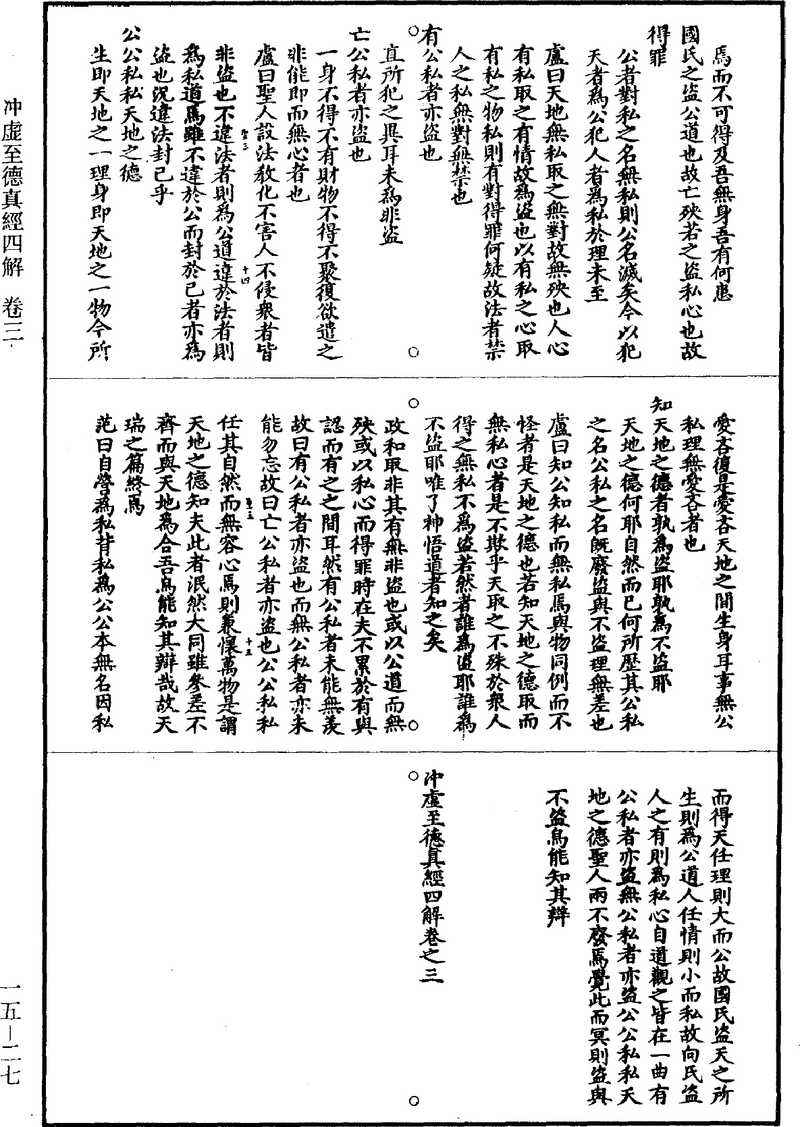 焉而不可得及吾無身吾有何患
國氏之盜公道也故亡殃若之盜私心也故
得罪
公者對私之名無私則公名滅矣今以犯
天者為公犯人者為私於理未至
盧曰天地無私取之無對故無殃也人心
有私取之有情故為盜也以有私之心取
有私之物私則有對得罪何疑故法者禁
人之私無對無禁也
有公私者亦盜也
直所犯之異耳未為非盜
亡公私者亦盜也
一身不得不有財物不得不聚復欲遣之
非能即而無心者也
盧曰聖人設法教化不害人不侵衆者皆
非盜也不違法者則為公道違於法者則
為私道焉雖不違於公而封於已者亦為
盜也況違法封已乎
公公私私天地之德
生即天地之一理身即天地之一物今所
愛吝復是愛吝天地之間生身耳事無公
私理無愛吝者也
知天地之德者孰為盜耶孰為不盜耶
天地之德何耶自然而已何所歷其公私
之名公私之名旣廢盜與不盜理無差也
盧曰知公知私而無私焉與物同例而不
怪者是天地之德也若知天地之德取而
無私心者是不欺乎天取之不殊於衆人
得之無私不為盜若然者誰為盜耶誰為
不盜耶唯了神悟道者知之矣
政和取非其有無非盜也或以公道而無
殃或以私心而得罪時在夫不累於有與
認而有之之間耳然有公私者未能無羨
故曰有公私者亦盜也而無公私者亦未
能勿忘故曰亡公私者亦盜也公公私私
任其自然而無容心焉則兼懷萬物是謂
天地之德知夫此者泯然大同雖參差不
齊而與天地為合吾烏能知其辯哉故天
瑞之篇終焉
范曰自營為私背私為公公本無名因私
而得天任理則大而公故國氏盜天之所
生則為公道人任情則小而私故向氏盜
人之有則為私心自道觀之皆在一曲有
公私者亦盜無公私者亦盜公公私私天
地之德聖人兩不廢焉覺此而冥則盜與
不盜烏能知其辯
沖虛至德真經四解卷之三
冲虛至德真經四解　卷三
一五—二七